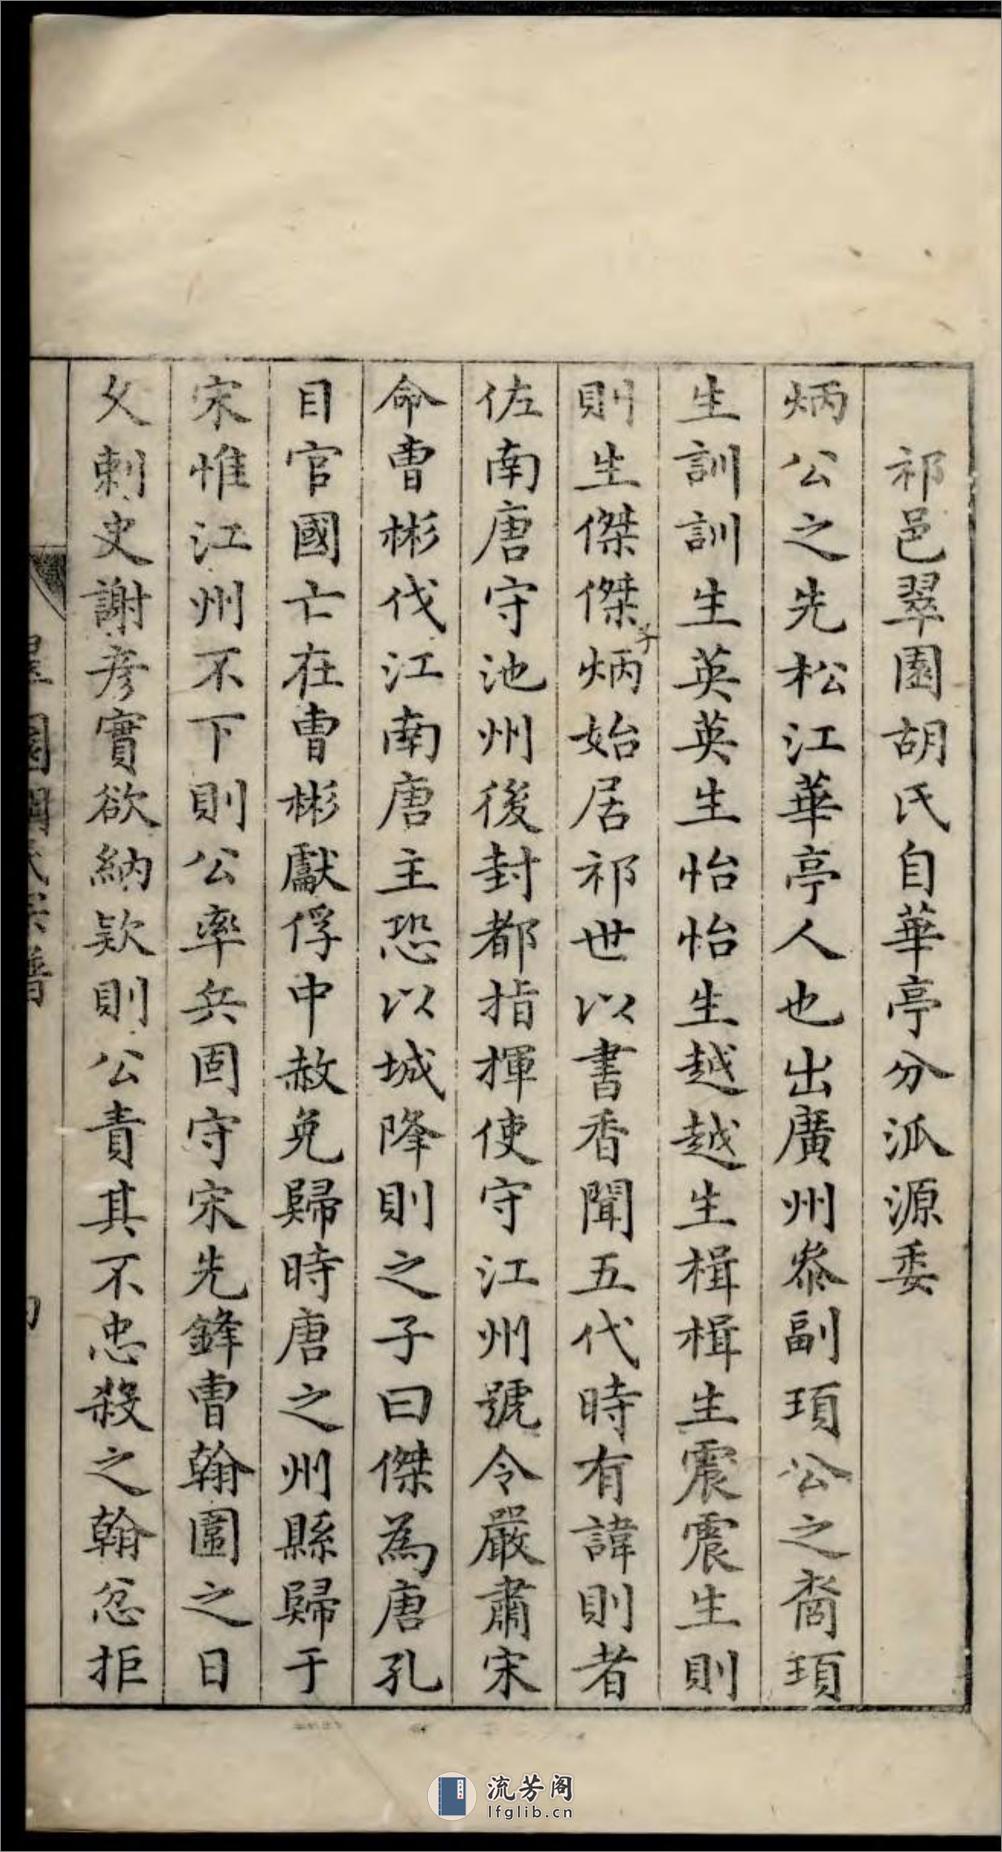 祁邑翠園胡氏自華亭分泒源委
炳公之先松江華亭人也出廣州叅副頊公之裔頊
生訓訓生英英生怡怡生越越生楫楫生震震生則
則生傑傑子炳始居祁世以書香聞五代時有諱則者
佐南唐守池州後封都指揮使守江州號令嚴肅宋
命曹彬伐江南唐主恐以城降則之子曰傑為唐孔
目官國亡在曹彬獻俘中赦免歸時唐之州縣歸于
宋惟江州不下則公率兵固守宋先鋒曹翰圍之日
久刺史謝彦實欲納欵則公責其不忠殺之翰忿拒
園胡氏宗譜
流芳阁
lfglib.cn